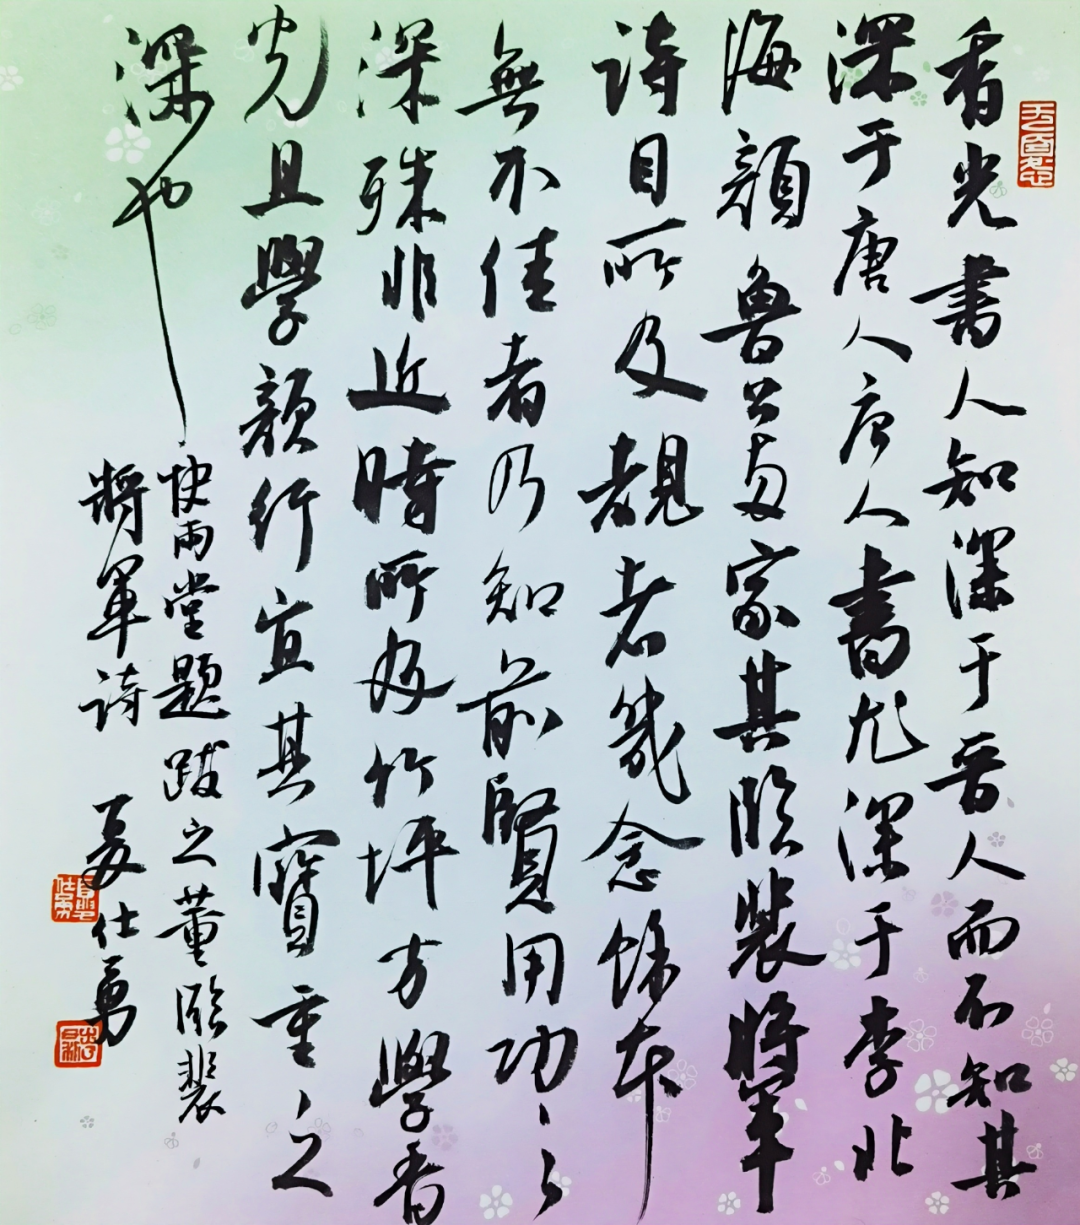 香光書人知深于晋人而不知其
深于唐人唐人書尤深于李北
海顔魯公两家其臨裴將軍
詩目所及覩者幾念餘本
無不佳者乃知前賢用功之
深殊非近時所及竹坪方學香
光且學顔行宜其寶重之
深也
快雨堂題跋之董臨裴
將軍詩 夏仕勇